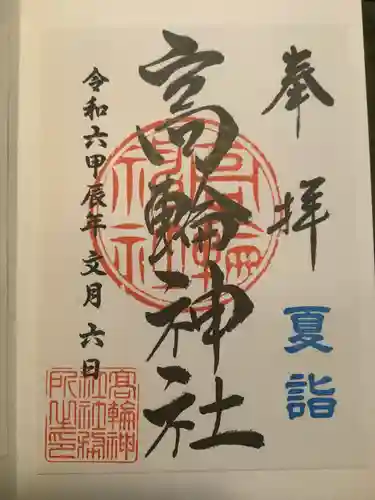 奉拝
夏詣
高輪神社
令和六甲辰年文月六日
高輪神
社社務
所之印